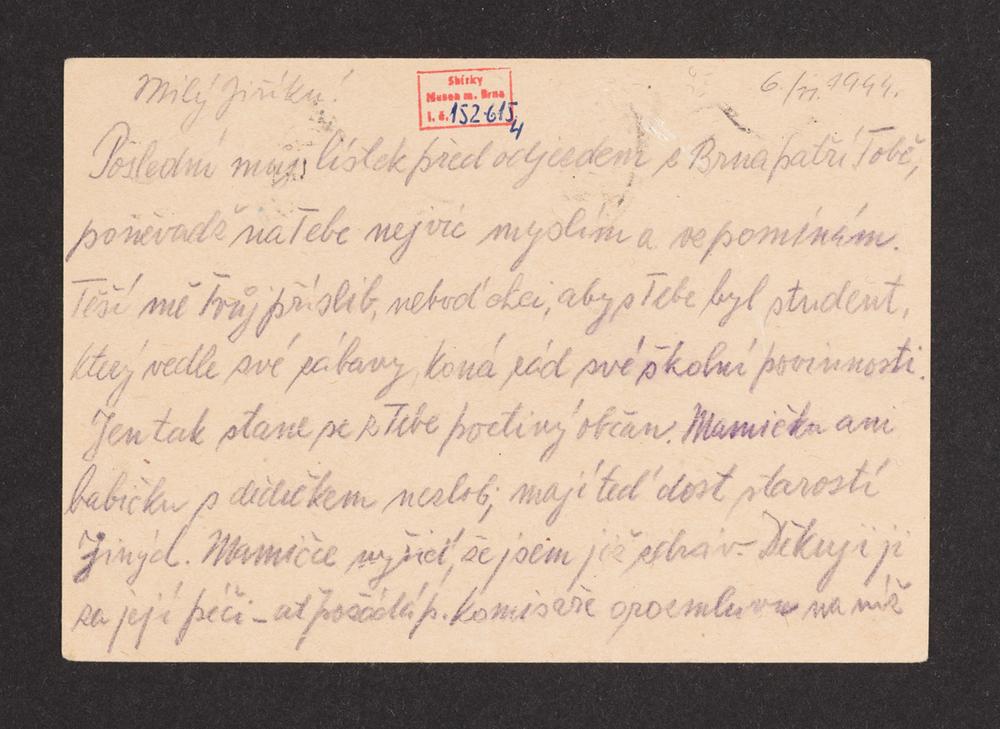 Milý Jiříku!
Sbírky
Musea m. Brna
i. č. 152.615
4
6./11. 1944.
Poslední můj lístek před odjezdem z Brna patří Tobě,
poněvadž na Tebe nejvíc myslím a vzpomínám.
Těší mě Tvůj příslib, neboď chci, aby s Tebe byl student,
který vedle své zábavy, koná rád své školní povinnosti.
Jen tak stane se z Tebe poctivý občan. Mamičku ani
babičku s dědečkem nezlob, mají teď dost starostí
jiných. Mamičce vyřiď, že jsem již zdráv – Děkuji ji
za její péči – ať požádá p. komisaře o rozmluvu na niž